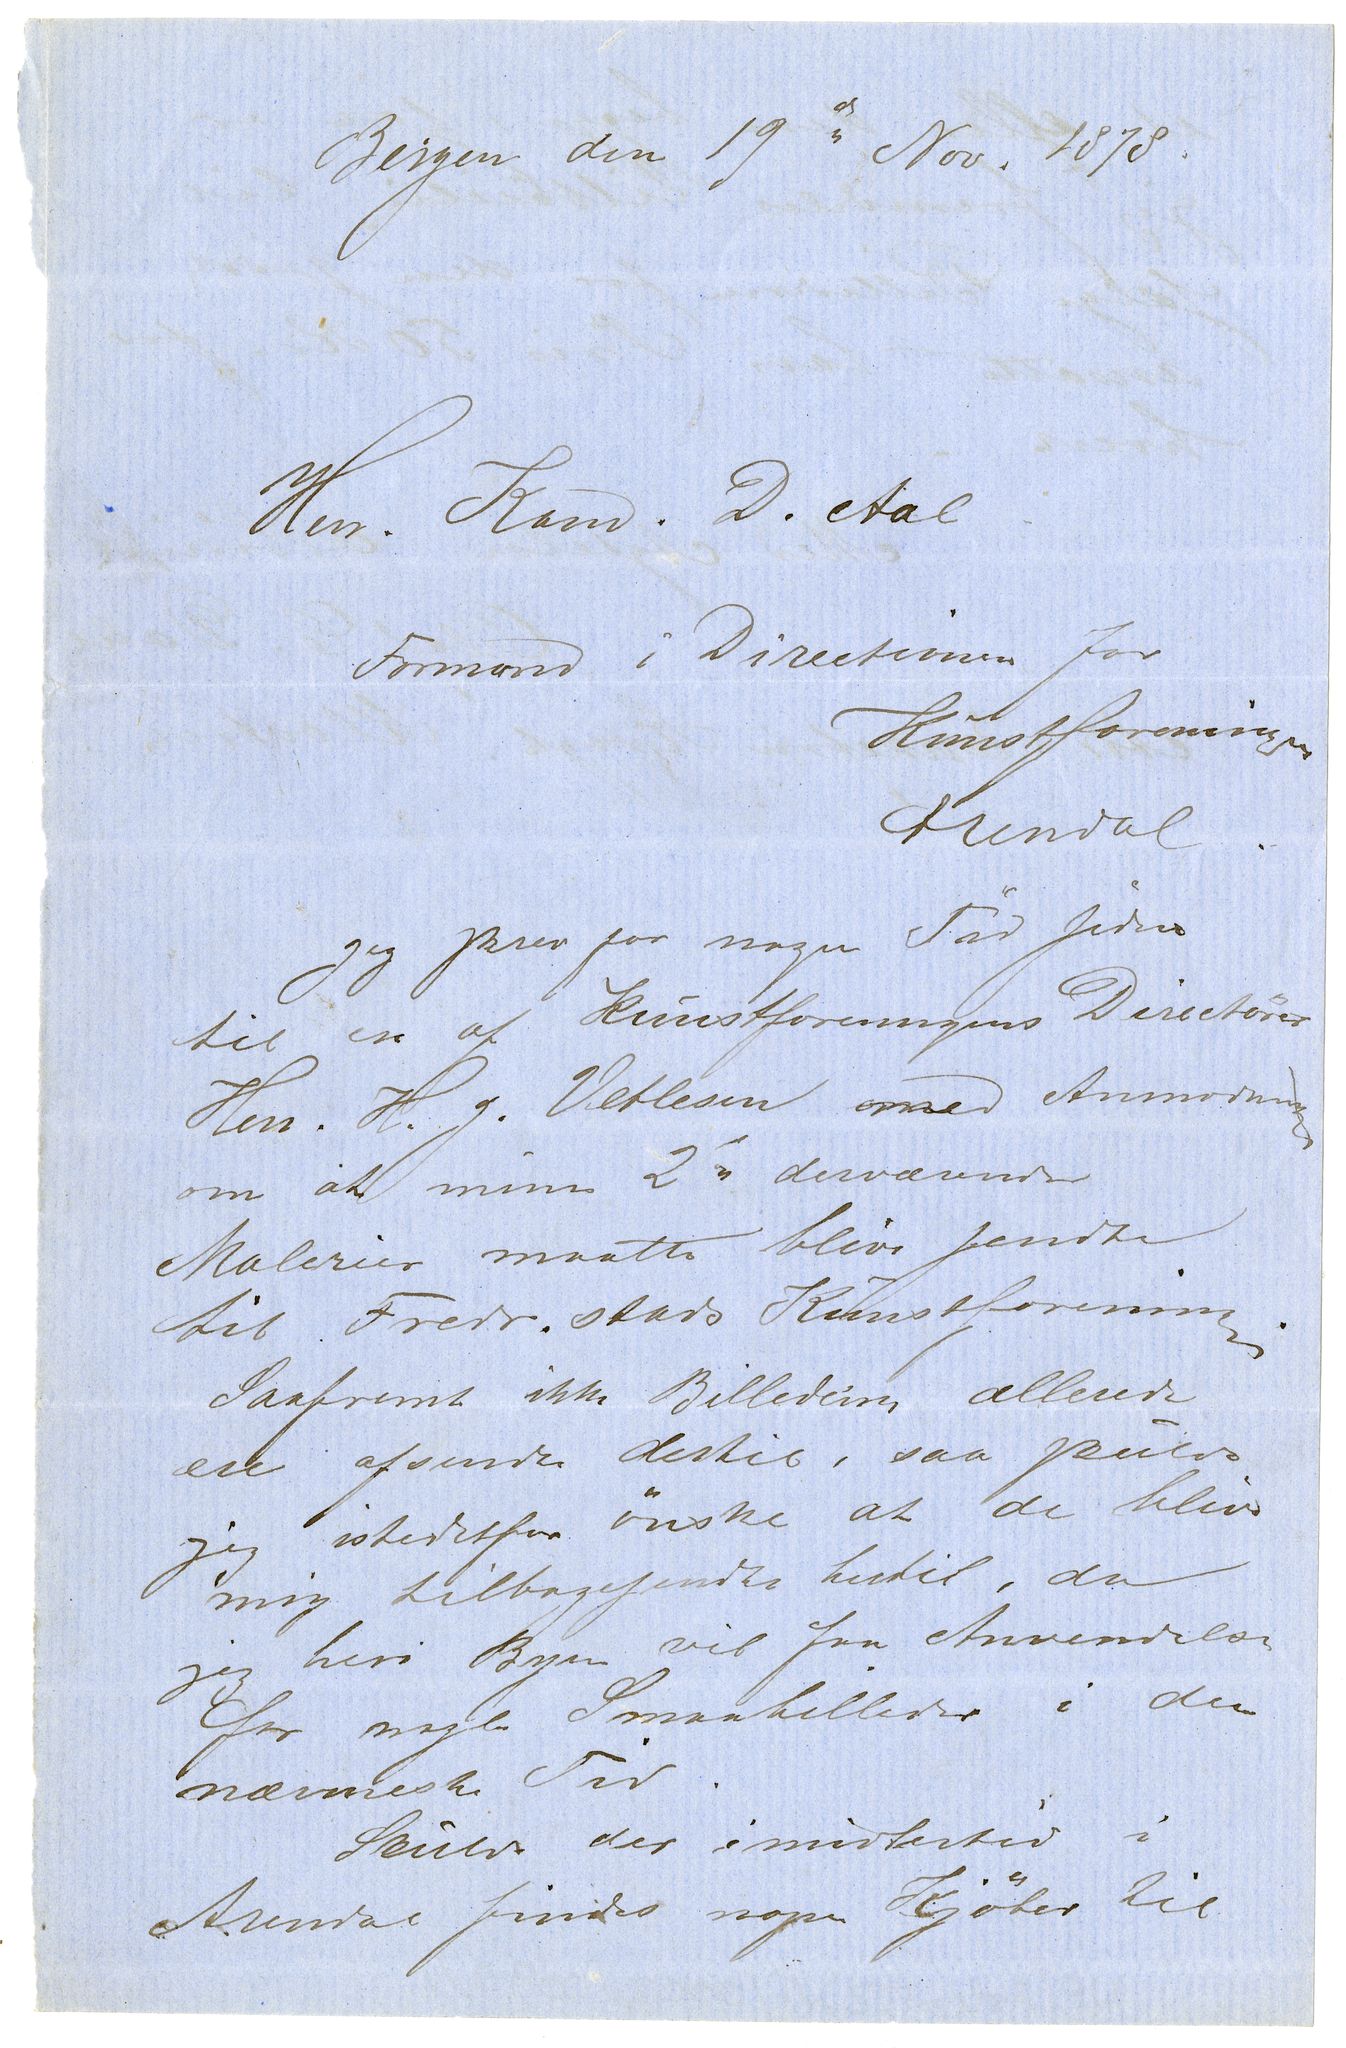 Bergen den 19de Nov. 1878.
Herr. Kand. D. Aal
Formand i Directionen for
Kunstforeningen
Arendal.
jeg skrev for nogen Tid siden
til en af Kunstforeningens Directörer
Herr. H. J. Vetlesen med Anmodning
om at mine 2de derværende
Malerier maatte blive sendte
til Fredr.stads Kunstforening.
Saafremt ikke Billederne allerede
ere afsendte dertil, saa skulde
jeg istedetfor önske at de blive
mig tilbagesendte hertil, da
jeg heri Byen vil faa Anvendelse
for nogle Smaabilleder i den
nærmeste Tid.
Skulde der imidlertid i
Arendal findes nogen Kjöber til